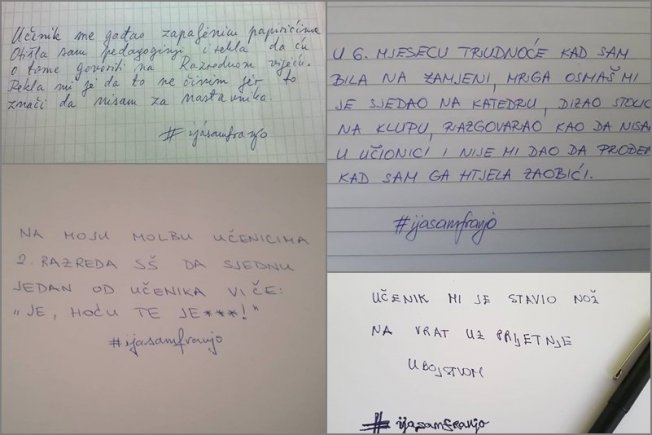 Učenik me gađao zapaljenim papirićima.
Otišla sam pedagoginji i rekla da ću
o tome govoriti na Razrednom vijeću.
Rekla mi je da to ne činim jer to
znači da nisam za nastavnika.
#ijasamfranjo
U 6. MJESECU TRUDNOĆE KAD SAM
BILA NA ZAMJENI, MRGA OSMAŠ MI
JE SJEDAO NA KATEDRU, DIZAO STOLIC
NA KLUPU, RAZGOVARAO KAO DA NISA
U UČIONICI I NIJE MI DAO DA PROĐEM
KAD SAM GA HTJELA ZAOBIĆI.
#ijasamfranjo
NA MOJU MOLBU UČENICIMA
2. RAZREDA SŠ DA SJEDNU
JEDAN OD UČENIKA VIČE:
"JE, HOĆU TE JE***!"
#ijasamfranjo
UČENIK MI JE STAVIO NOŽ
NA VRAT UZ PRIJETNJE
UBOJSTVOM
#ijasamfranjo